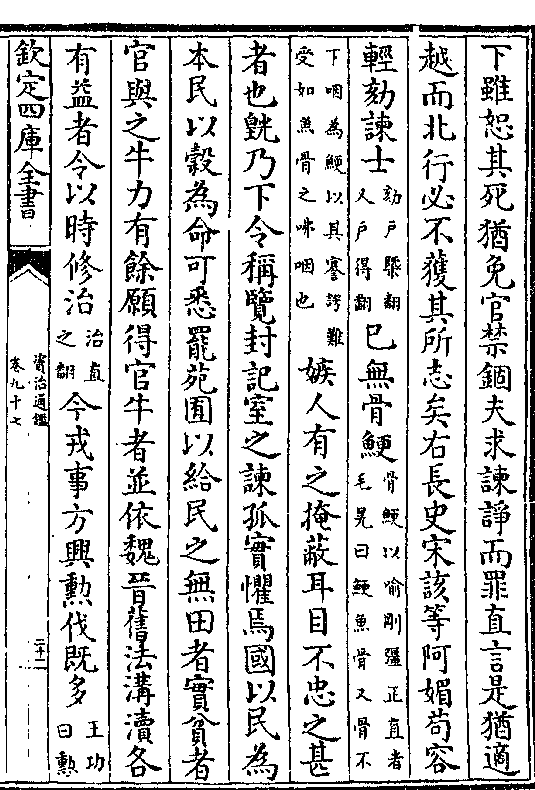 下雖恕其死猶免官禁錮夫求諫諍而罪直言是猶適
越而北行必不獲其所志矣右長史宋該等阿媚苟容
輕劾諫士劾戶槩翻又戶得翻已無骨鯁骨鯁以喻剛彊正直者毛晃曰鯁魚骨又骨不
下咽為鯁以其謇諤難受如魚骨之咈咽也嫉人有之掩蔽耳目不忠之甚
者也皝乃下令稱覽封記室之諫孤實懼焉國以民為
本民以穀為命可悉罷苑囿以給民之無田者實貧者
官與之牛力有餘願得官牛者並依魏晉舊法溝瀆各
有益者令以時修治治直之翻今戎事方興勲伐既多王功曰勲
欽定四庫全書
資治通鑑
卷九十七
二十一